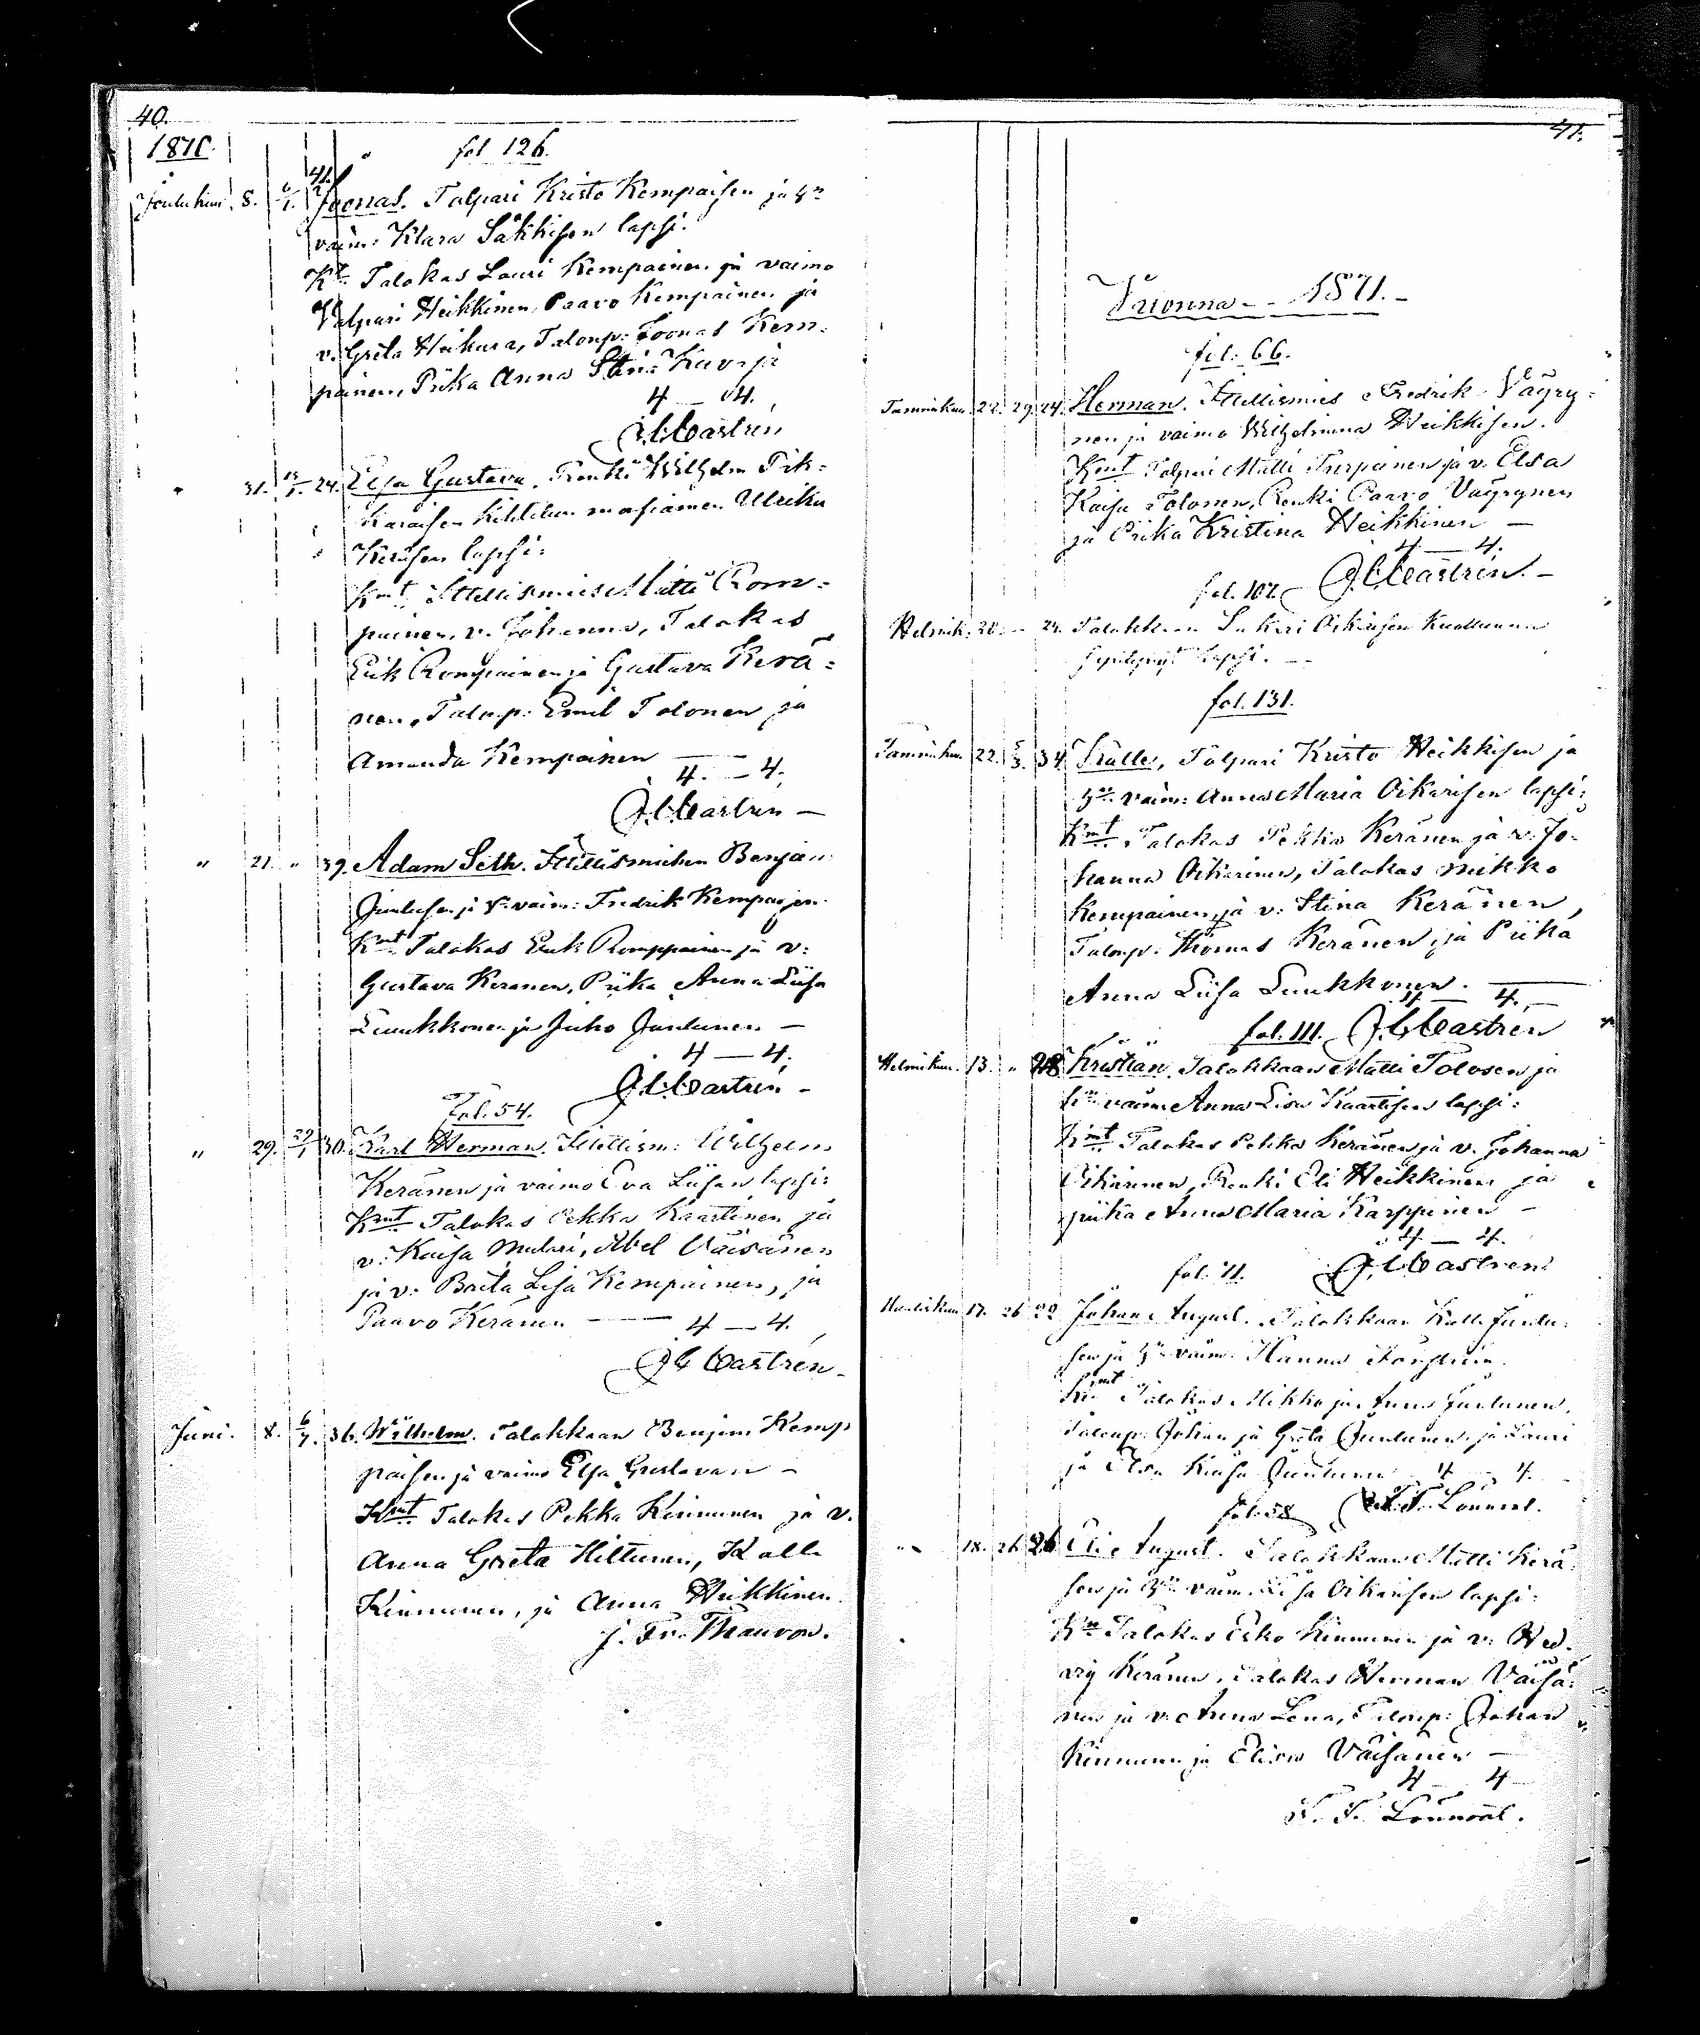 40.
1870.
fol. 126.
Joulukuu. 8. 6/1. 41. Joonas. Talpari Kristo Kempaisen ja hn
vaim: Klara Säkkisen lapsi:
Kt Talokas Lauri Kempainen ja vaimo
Valpuri Heikkinen, Paavo Kempainen ja
v. Greta Heikura, Talonp: Joonas Kem-
painen, Piika Anna Stina
4 — 4.
J. C. Castrén
" 31. 24. Elsa Gustava. Renki Wilhelm Pik-
karaisen Ulrika
Keräsen lapsi:
Kmt Ittellismies Matti Rom-
painen, v. Johanna, Talokas
Erik Rompainen ja Gustava Kerä-
nen, Talonp: Emil Tolonen ja
Amanda Kempainen —
4. — 4.
J. C. Castrén —
" 21. " 39. Adam Seth. Ittellismiehen Benjam:
Juntusen ja vaim: Fredrik Kempaisen
Kmt Talokas Erik Romppainen ja v:
Gustava Keränen, Piika Anna Liisa
Luukkonen ja Juho Juntunen —
4 — 4.
J. C. Castrén —
Fol. 54.
" 29. 29/1 30. Karl Herman. Ittellism: Wilhelm
Keränen ja vaimo Eva Liisan lapsi:
Kmt Talokas Pekka Kaartinen ja
v. Kaisa Mulari, Abel Väisänen
ja v. Brita Lisa Kempainen, ja
Paavo Keränen — 4 — 4.
J. C. Castrén.
Juni. 8. 6/7. 36. Wilhelm. Talokkaan Benjam. Kemp-
paisen ja vaimo Elsa Gustavan —
Kmt Talokas Pekka Kinnunen ja v.
Anna Greta Hiltunen, Kalle
Kinnunen, ja Anna Heikkinen.
J. Fr. Thauvon.
41.
Vuonna — 1871. —
fol. 66.
Tammikuu 22. 29. 24. Herman. Ittellismies Fredrik Väyry-
nen ja vaimo Wilhelmina Heikkisen.
Kmt Talpari Matti Turpeinen ja v. Elsa
Kaisa Tolonen, Renki Paavo Väyrynen
ja Piika Kristina Heikkinen —
4 — 4.
fol. 107. J. C. Castrén. —
Helmik. 20. — 24. Talokkaan Sakari Oikarisen kuolluna
syntynyt lapsi. —
fol. 131.
Tammikuu 22. 5/3. 34. Kalle, Talpari Kristo Heikkisen ja
hn. vaim: Anna Maria Oikarisen lapsi:
Kmt Talokas Pekka Keränen ja v: Jo-
hanna Oikarinen, Talokas Mikko
Kempainen ja v: Stina Keränen,
Talonp. Thomas Keränen, ja Piika
Anna Liisa Luukkonen. —
4 — 4. —
fol. 111. J. C. Castrén
Helmikuu. 13. " 28 Kristian. Talokkaan Matti Tolosen ja
hn vaim: Anna Lisa Kaartisen lapsi:
Kmt Talokas Pekka Keränen ja v. Johanna
Oikarinen, Renki Eli Heikkinen ja
piika Anna Maria Karppinen —
4 — 4.
fol. 11. J. C. Castrén.
Huhtikuu 17. 26 Johan August. Talokkaan Kalle Juntu-
sen ja hn vaim: Hanna
Kmt Talokas Mikko ja Anna Juntunen,
Talonp: Johan ja Greta Juntunen, ja Lauri
ja Elsa Kaisa Juntunen 4 — 4.
fol. 58 F. F. Lönnrot.
" 18. 26 26 Eli August. Talokkaan Matti Kerä-
sen ja hn vaim. Oikarisen lapsi:
Kmt Talokas Esko Kinnunen ja v: Hed-
vig Keränen, Talokas Herman Väisä-
nen ja v: Anna Lena, Talonp: Johan
Kinnunen ja Elisa Väisänen —
4 — 4 —
F. F. Lönnrot.